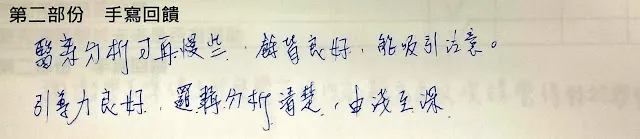 第二部份　手寫回饋
醫案分析可再慢些，餘皆良好，能吸引注意。
引導力良好，邏輯分析清楚，由淺至深